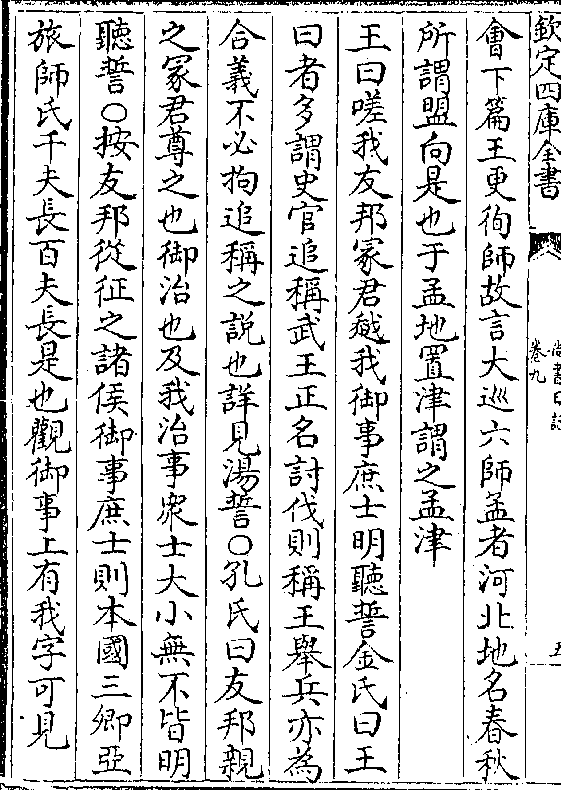 欽定四庫全書
尚書日記
卷九
五
會下篇王更徇師故言大巡六師孟者河北地名春秋
所謂盟向是也于孟地置津謂之孟津
王曰嗟我友邦冢君越我御事庶士明聽誓金氏曰王
曰者多謂史官追稱武王正名討伐則稱王舉兵亦為
合義不必拘追稱之說也詳見湯誓○孔氏曰友邦親
之冢君尊之也御治也及我治事衆士大小無不皆明
聽誓○按友邦從征之諸侯御事庶士則本國三卿亞
旅師氏千夫長百夫長是也觀御事上有我字可見